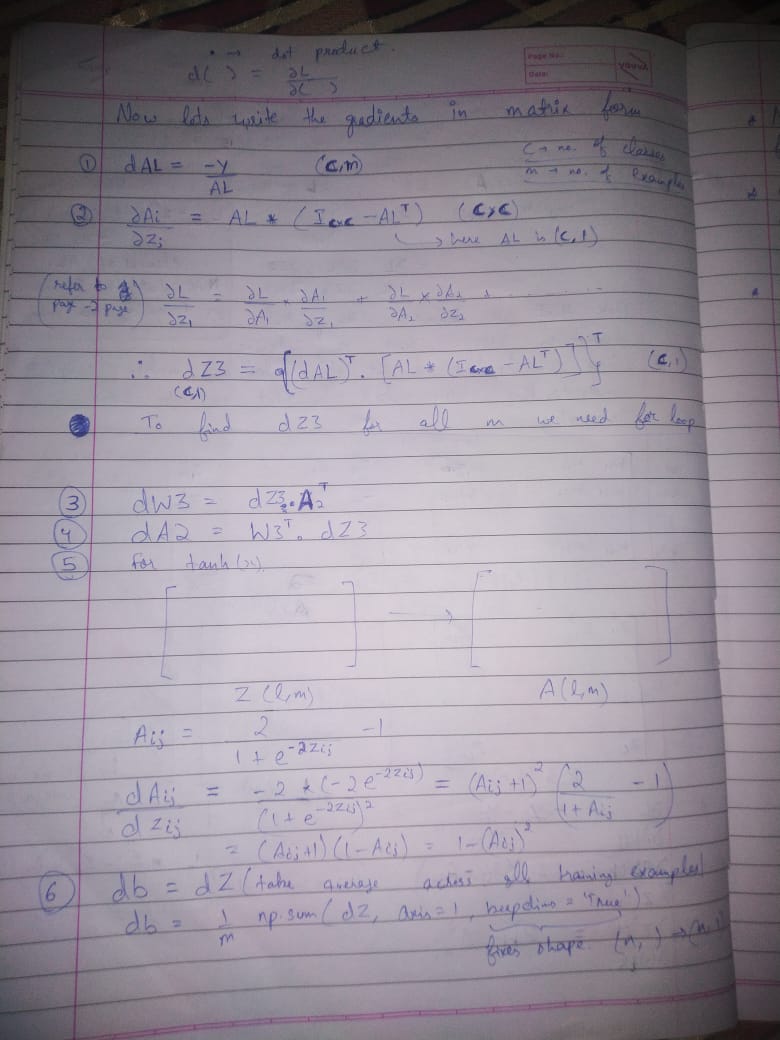 • → dot product.
d( ) = ∂L / ∂( )
Page No.:
Date:
YOUVA
Now lets write the gradients in matrix form
① dAL = -Y / AL (C,m)
C → no. of classes
m → no. of examples
② ∂Ai / ∂Zj = AL * (I_{C×C} - AL^T) (C×C)
↳ here AL is (C,1)
(refer to page → page)
∂L/∂Z₁ = ∂L/∂A₁ × ∂A₁/∂Z₁ + ∂L/∂A₂ × ∂A₂/∂Z₂ + ......
∴ dZ3 = {(dAL)^T . [AL * (I_{C×C} - AL^T)]}^T (C,1)
(C,1)
To find dZ3 for all m we need for loop
③ dW3 = dZ3 . A₂^T
④ dA2 = W3^T . dZ3
⑤ for tanh(x).
[ ] → [ ]
Z (l,m) A (l,m)
Aij = 2 / (1 + e^{-2Zij}) - 1
dAij / dZij = -2 * (-2e^{-2Zij}) / (1 + e^{-2Zij})² = (Aij + 1)² (2 / (1 + Aij) - 1)
= (Aij+1) (1 - Aij) = 1 - (Aij)²
⑥ db = dZ (take average across all training examples)
db = 1/m np.sum( dZ, axis = 1, keepdims = 'True')
fixes shape. (n, ) ⇒ (n, 1)